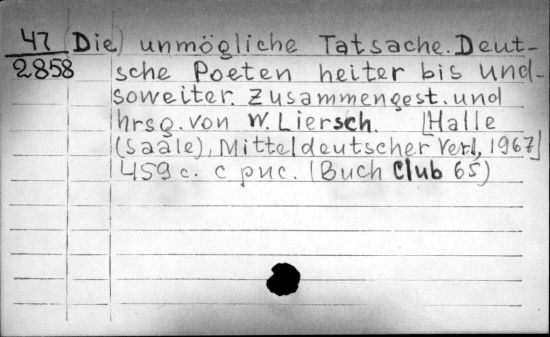 47 (Die) unmögliche Tatsache. Deut-
2858 sche Poeten heiter bis und-
soweiter. Zusammengest. und
hrsg. von W. Liersch. [Halle
(Saale), Mitteldeutscher Verl, 1967]
459 с. с рис. (Buch Club 65)